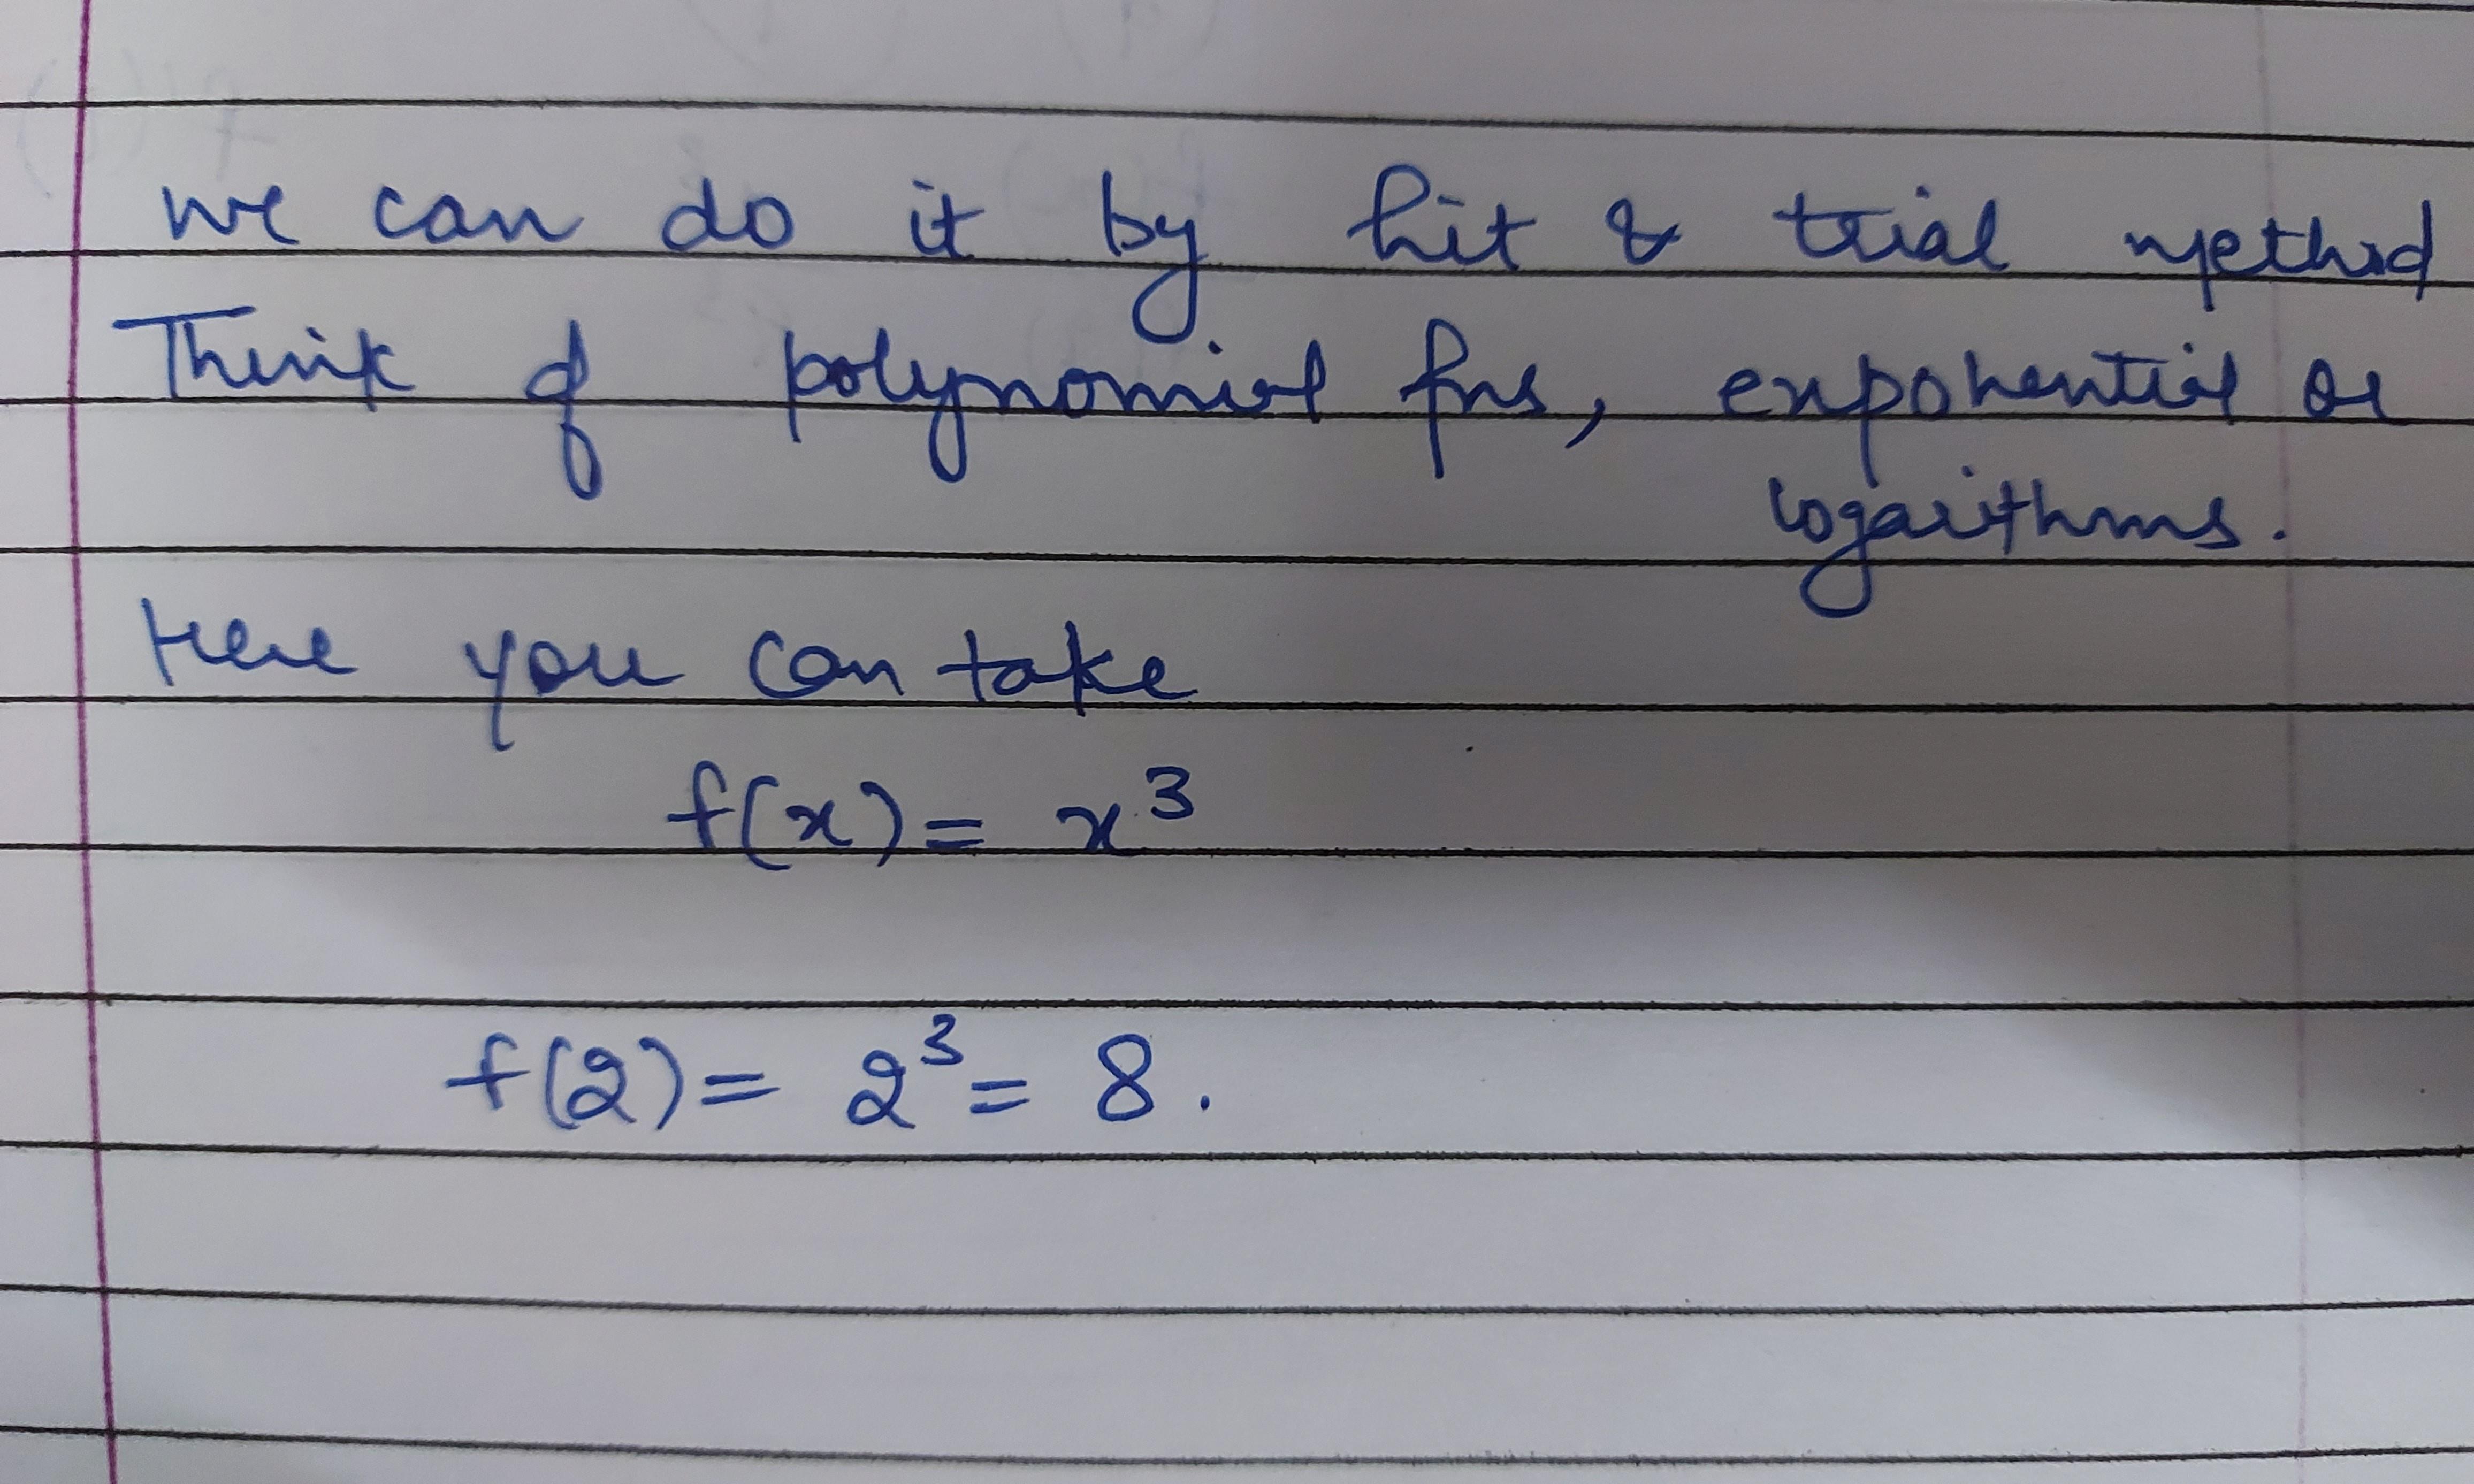 we can do it by hit & trial method
Think of polynomial fns, exponential or
logarithms.
Here you can take
f(x) = x³
f(2) = 2³ = 8.